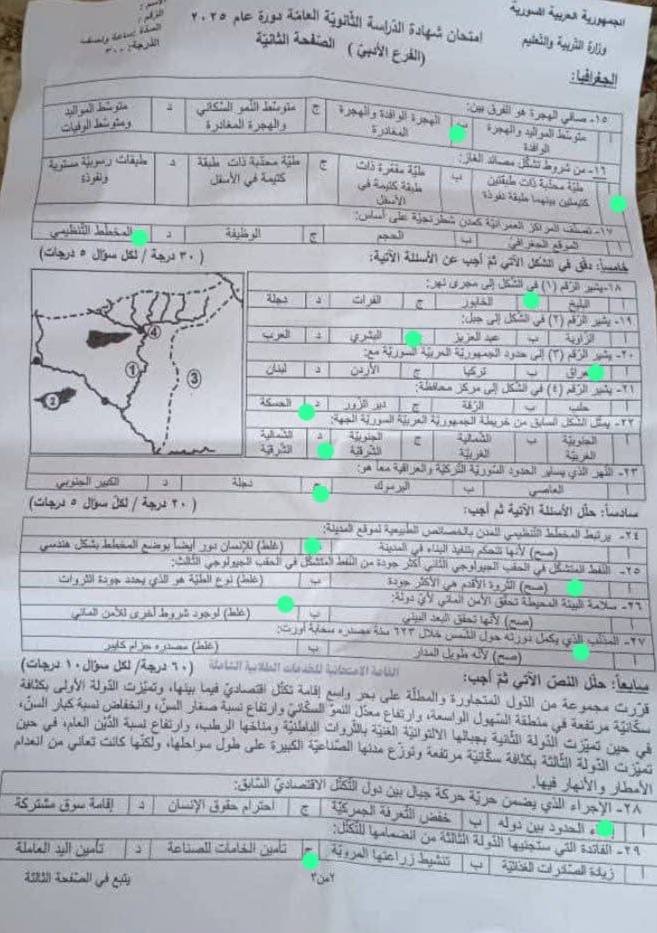 الجمهورية العربية السورية
وزارة التربية والتعليم
امتحان شهادة الدراسة الثانوية العامة دورة عام ٢٠٢٥
(الفرع الأدبي) الصفحة الثانية
الاسم:
الرقم:
المدة: ساعة ونصف
الدرجة: ٣٠٠
الجغرافيا:
١٥- صافي الهجرة هو الفرق بين:
أ متوسط المواليد والهجرة الوافدة ب الهجرة الوافدة والهجرة المغادرة ج متوسط النمو السكاني والهجرة المغادرة د متوسط المواليد ومتوسط الوفيات
١٦- من شروط تشكّل مصائد الغاز:
أ طيّة محدّبة ذات طبقتين كتيمتين بينهما طبقة نفوذة ب طيّة مقعّرة ذات طبقة كتيمة في الأسفل ج طيّة محدّبة ذات طبقة كتيمة في الأسفل د طبقات رسوبيّة مستوية ونفوذة
١٧- تصنّف المراكز العمرانيّة كمدن شطرنجيّة على أساس:
أ الموقع الجغرافي ب الحجم ج الوظيفة د المخطط التنظيمي
خامساً: دقّق في الشكل الآتي ثمّ أجب عن الأسئلة الآتية: (٣٠ درجة / لكل سؤال ٥ درجات)
١٨- يشير الرّقم (١) في الشكل إلى مجرى نهر:
أ البليخ الخابور ج الفرات د دجلة
١٩- يشير الرّقم (٢) في الشكل إلى جبل:
أ الزاوية ب عبد العزيز البشري د العرب
٢٠- يشير الرّقم (٣) إلى حدود الجمهورية العربيّة السوريّة مع:
أ ب تركيا ج الأردن د لبنان
٢١- يشير الرّقم (٤) في الشكل إلى مركز محافظة:
أ حلب ب الرّقة ج دير الزّور الحسكة
٢٢- يمثّل الشكل السابق من خريطة الجمهوريّة العربيّة السوريّة الجهة:
أ الجنوبيّة الغربيّة ب الشماليّة الغربيّة ج الجنوبيّة الشرقيّة د الشماليّة الشرقيّة
٢٣- النّهر الذي يساير الحدود السّوريّة التّركيّة والعراقية معاً هو:
أ العاصي ب اليرموك دجلة د الكبير الجنوبي
4
1
3
2
سادساً: حلّل الأسئلة الآتية ثم أجب: (٢٠ درجة / لكل سؤال ٥ درجات)
٢٤- يرتبط المخطط التّنظيمي للمدن بالخصائص الطبيعية لموقع المدينة:
أ (صح) لأنها تتحكم بتنفيذ البناء في المدينة (غلط) للإنسان دور أيضاً بوضع المخطط بشكل هندسي
٢٥- النفط المتشكّل في الحقب الجيولوجي الثّاني أكثر جودة من النفط المتشكّل في الحقب الجيولوجي الثالث:
(صح) الثروة الأقدم هي الأكثر جودة ب (غلط) نوع الطيّة هو الذي يحدد جودة الثروات
٢٦- سلامة البيئة المحيطة تحقّق الأمن المائي لأيّ دولة:
أ (صح) لأنها تحقق البعد البيئي ب (غلط) لوجود شروط أخرى للأمن المائي
٢٧- المذنّب الذي يكمل دورته حول الشّمس خلال ٦٢٣ سنة مصدره سحابة أورت:
(صح) لأنّه طويل المدار ب (غلط) مصدره حزام كايبر
سابعاً: حلّل النصّ الآتي ثمّ أجب: (٦٠ درجة / لكل سؤال ١٠ درجات)
قرّرت مجموعة من الدّول المتجاورة والمطلّة على بحر واسع إقامة تكتّل اقتصاديّ فيما بينها، وتميّزت الدّولة الأولى بكثافة
سكّانيّة مرتفعة في منطقة السّهول الواسعة، وارتفاع معدّل النموّ السكّانيّ وارتفاع نسبة صغار السنّ، وانخفاض نسبة كبار السنّ،
في حين تميّزت الدّولة الثّانية بجبالها الالتوائيّة الغنيّة بالثّروات الباطنيّة ومناخها الرطب، وارتفاع نسبة الدّين العام، في حين
تميّزت الدّولة الثّالثة بكثافة سكّانية مرتفعة وتوزّع مدنها الصّناعيّة الكبيرة على طول سواحلها، ولكنّها كانت تعاني من انعدام
الأمطار والأنهار فيها.
٢٨- الإجراء الذي يضمن حريّة حركة جبال بين دول التّكتّل الاقتصاديّ السّابق:
أ الحدود بين دوله ب خفض التّعرفة الجمركيّة ج احترام حقوق الإنسان د إقامة سوق مشتركة
٢٩- الفائدة التي ستجنيها الدّولة الثّالثة من انضمامها للتّكتّل:
أ زيادة الصّادرات الغذائيّة ب تنشيط زراعتها المرويّة تأمين الخامات للصناعة د تأمين اليد العاملة
٢من٣
يتبع في الصفحة الثالثة